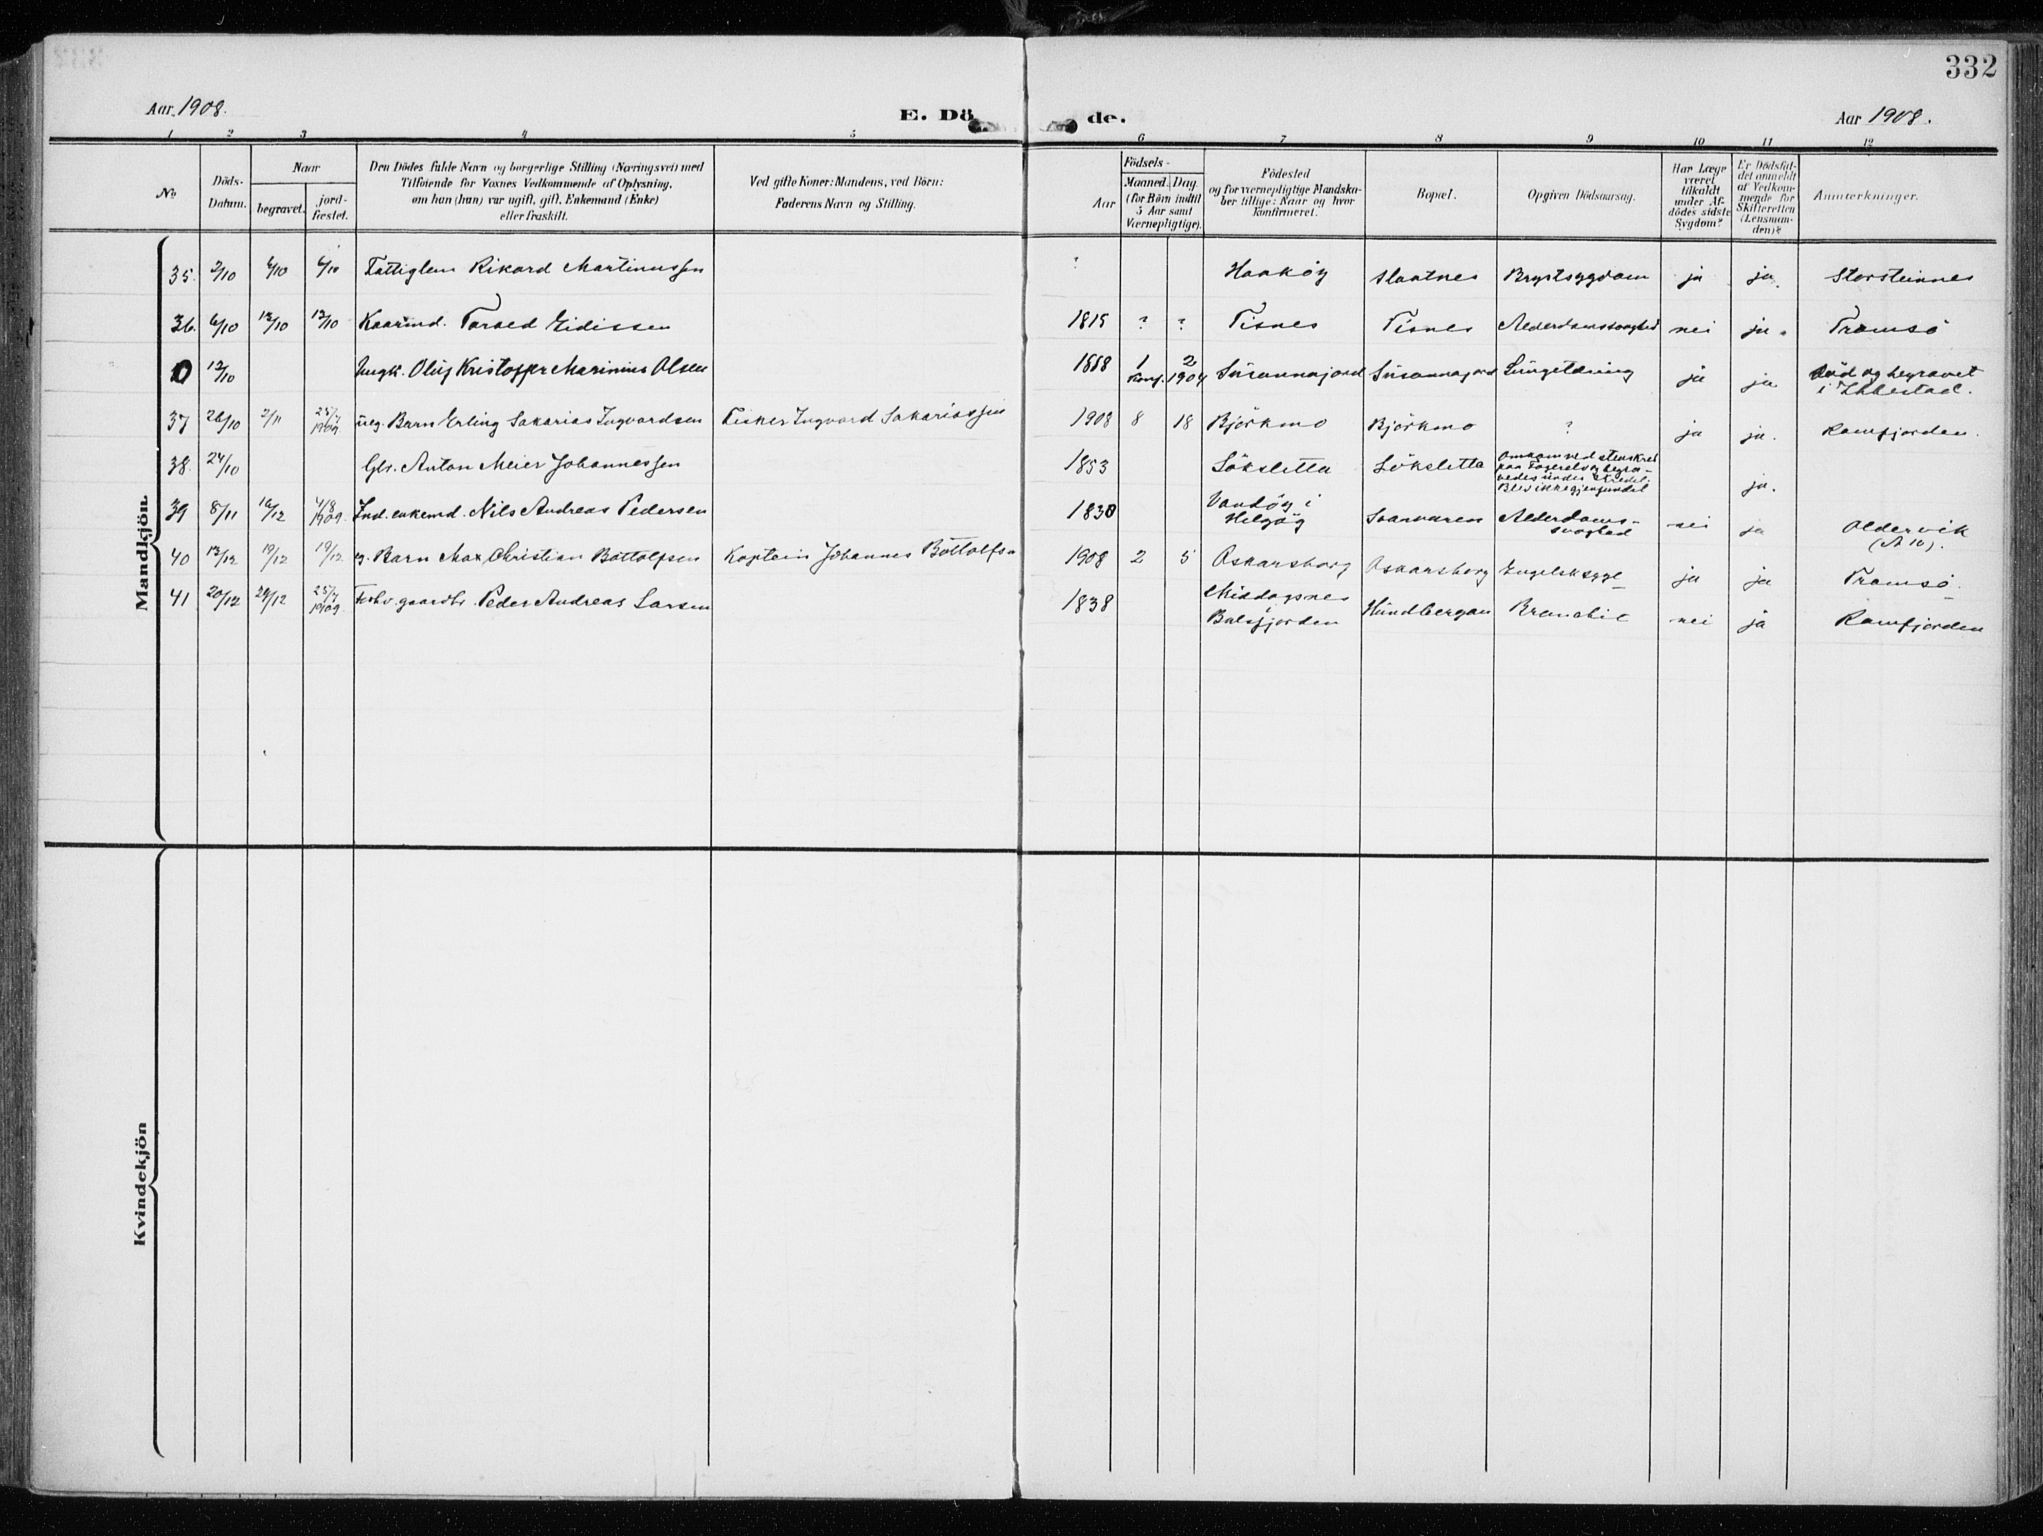 332
Aar 1908.
E. Dö de.
Aar 1908.
1 2 3 4 5 6 7 8 9 10 11 12
No
Döds-
Datum.
Naar
begravet.
jord-
fæstet.
Den Dödes fulde Navn og borgerlige Stilling (Næringsvei) med
Tilföiende for Voxnes Vedkommende af Oplysning,
om han (hun) var ugift, gift, Enkemand (Enke)
eller fraskilt.
Ved gifte Koner: Mandens, ved Börn:
Faderens Navn og Stilling.
Födsels-
Aar
Maaned. Dag
(for Börn indtil
5 Aar samt
Værnepligtige).
Födested
og for værnepligtige Mandska-
ber tillige: Naar og hvor
konfirmeret.
Bopæl.
Opgiven Dödsaarsag.
Har Læge
været
tilkaldt
under Af-
dödes sidste
Sygdom?
Er Dödsfal-
det anmeldt
af Vedkom-
mende for
Skifteretten
(Lensman-
den)?
Anmærkninger.
Mandkjön
35. 3/10 6/10 6/10 Fattiglem Rikard Martinussen ? Haakøy Slaatnes Brystsygdom ja ja. Storsteinnes
36. 6/10 12/10 12/10 Kaarmd. Tarald Eidissen 1815 ? ? Tisnes Tisnes Alderdomssvaghed nei ja. Tromsö
0 12/10 Ungk. Oluf Kristoffer Marinius Olsen 1888 1 2 Konf. 1904 Susannajord Susannajord Lungetæring ja ja. död og begravet
i Ibbestad.
37 26/10 2/11 25/7 1909 ueg. Barn Erling Sakarias Ingvardsen Fisker Ingvard Sakariassen 1908 8 18 Björkmo Björkmo ? ja ja. Ramfjorden.
38. 24/10 Gbr. Anton Meier Johannessen 1853 Löksletta Löksletta Omkom ved stenskred
paa Fagerelv og begra-
vedes under skredet.
Blev ikke gjenfundet ja.
39 8/11 16/12 4/8 1909. Ind. enkemd. Nils Andreas Pedersen 1830 Vandöy i
Helgöy Svarvaren Alderdoms-
svaghed nei ja Oldervik
(A 10).
40 12/12 19/12 19/12 g. Barn Max Christian Bottolfsen Kaptein Johannes Bottolfsen 1908 2 5 Oskarsborg Oskarsborg Engelsksyge ja ja Tromsö
41 20/12 29/12 25/7 1909 Forhv. gaardbr. Peder Andreas Larsen 1838 Middagsnes
Balsfjorden Hundbergan Bronchit nei ja Ramfjorden
Kvindekjön